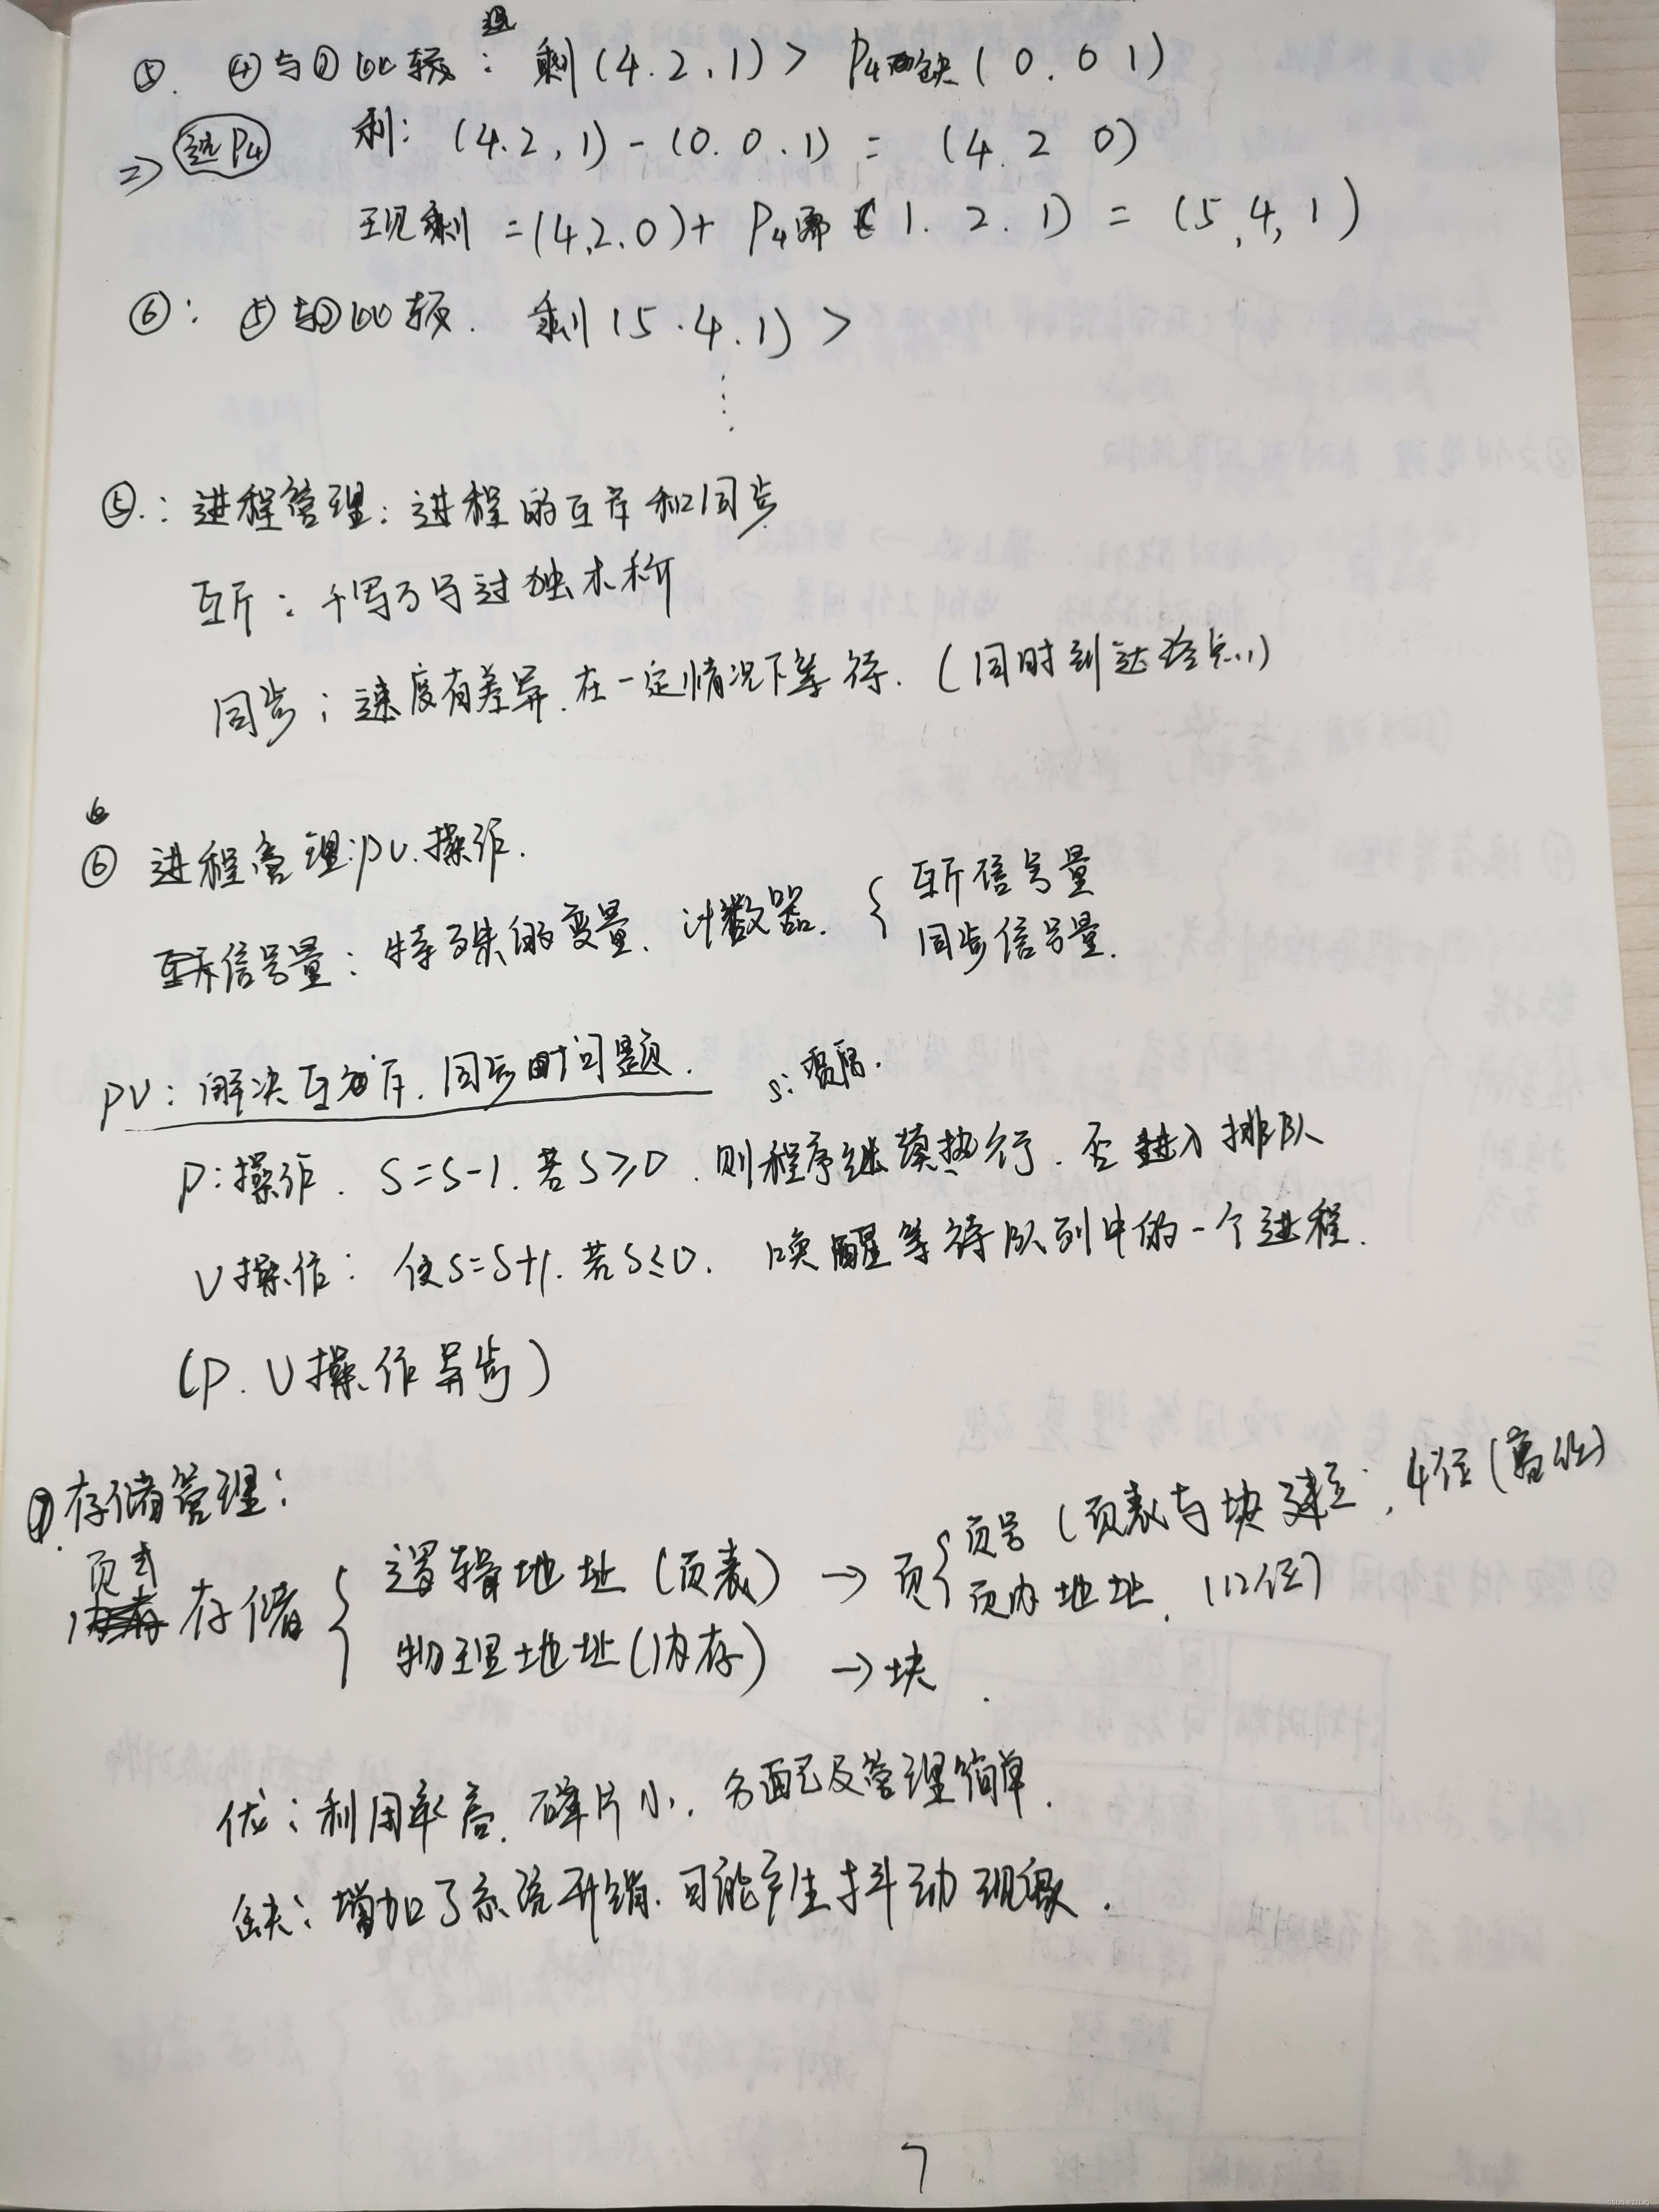 ⑤. ④与②比较: 剩(4.2,1) > P4缺(0.0 1)
⇒ 选P4 剩: (4.2,1) - (0.0.1) = (4.2 0)
现剩 =(4,2.0)+ P4需(1.2.1) = (5,4,1)
⑥: ⑤与②比较. 剩(5.4.1) >
⋮
⑤.: 进程管理: 进程的互斥和同步
互斥: 千军万马过独木桥
同步: 速度有差异.在一定情况下等待. (同时到达终点..)
⑥ 进程管理:PV.操作.
信号量: 特殊的变量. 计数器. { 互斥信号量
同步信号量.
PV: 解决互斥.同步时问题. S:资源.
P:操作. S=S-1.若S≥0.则程序继续执行.否进入排队
V操作: 使S=S+1.若S≤0. 唤醒等待队列中的一个进程.
(P.V操作异步)
⑦存储管理:
页式存储 { 逻辑地址 (页表) → 页 { 页号 (页表与块建立, 4位(高位)
页内地址. (12位)
物理地址(内存) → 块.
优: 利用率高. 碎片小. 分配及管理简单.
缺: 增加了系统开销.可能产生抖动现象.
7